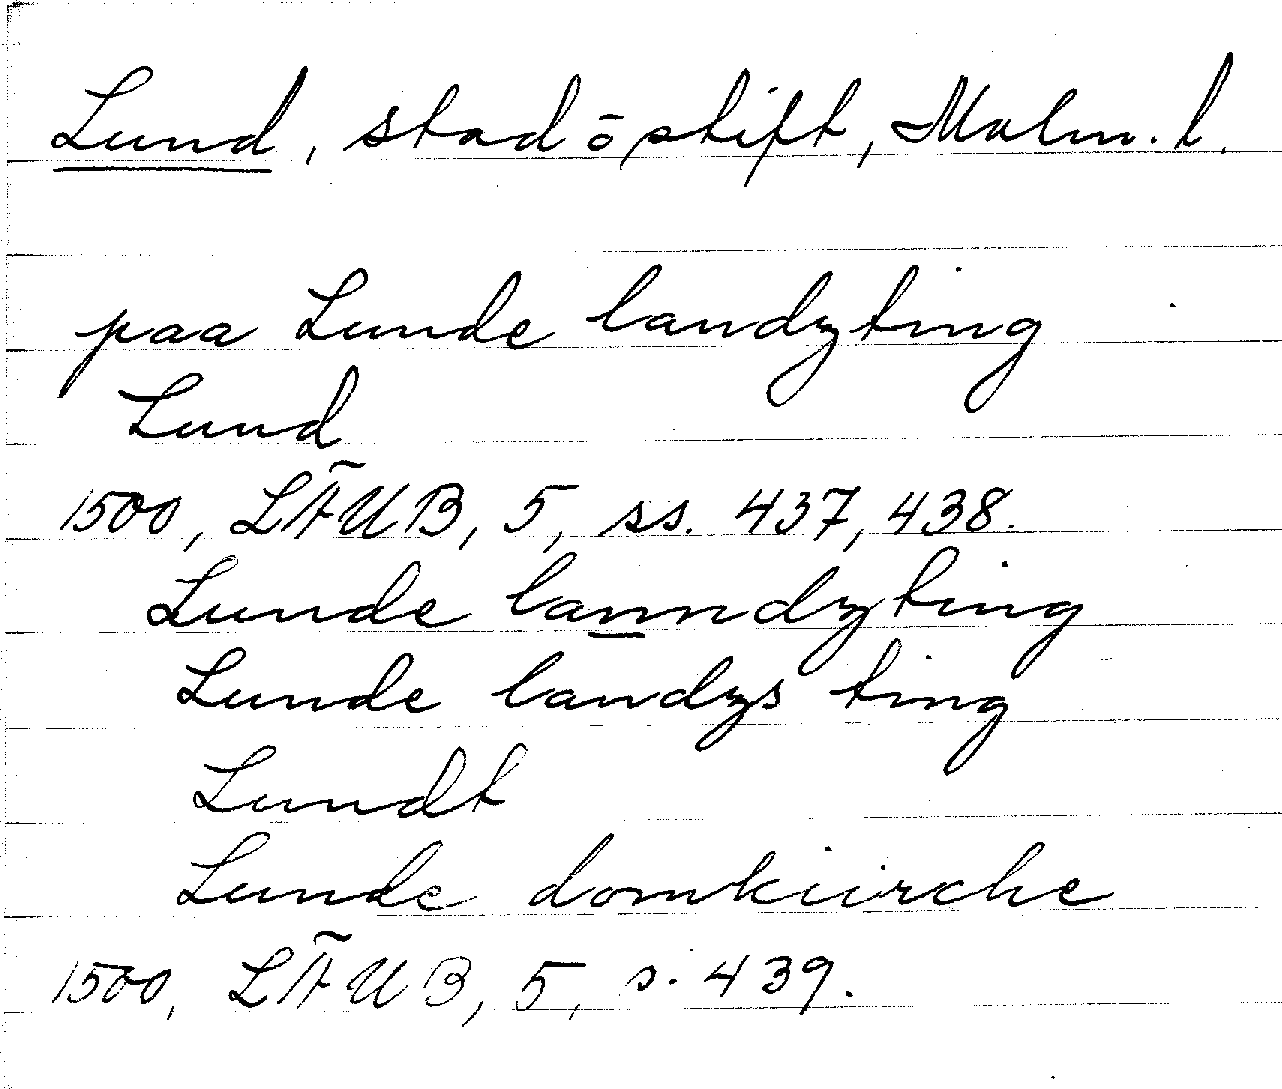 Lund, stad o stift, Malm. l.
paa Lunde landzting
Lund
1500, LÄUB, 5, ss. 437, 438.
Lunde lanndzting
Lunde landzs ting
Lundt
Lunde domkiirche
1500, LÄUB, 5, s. 439.